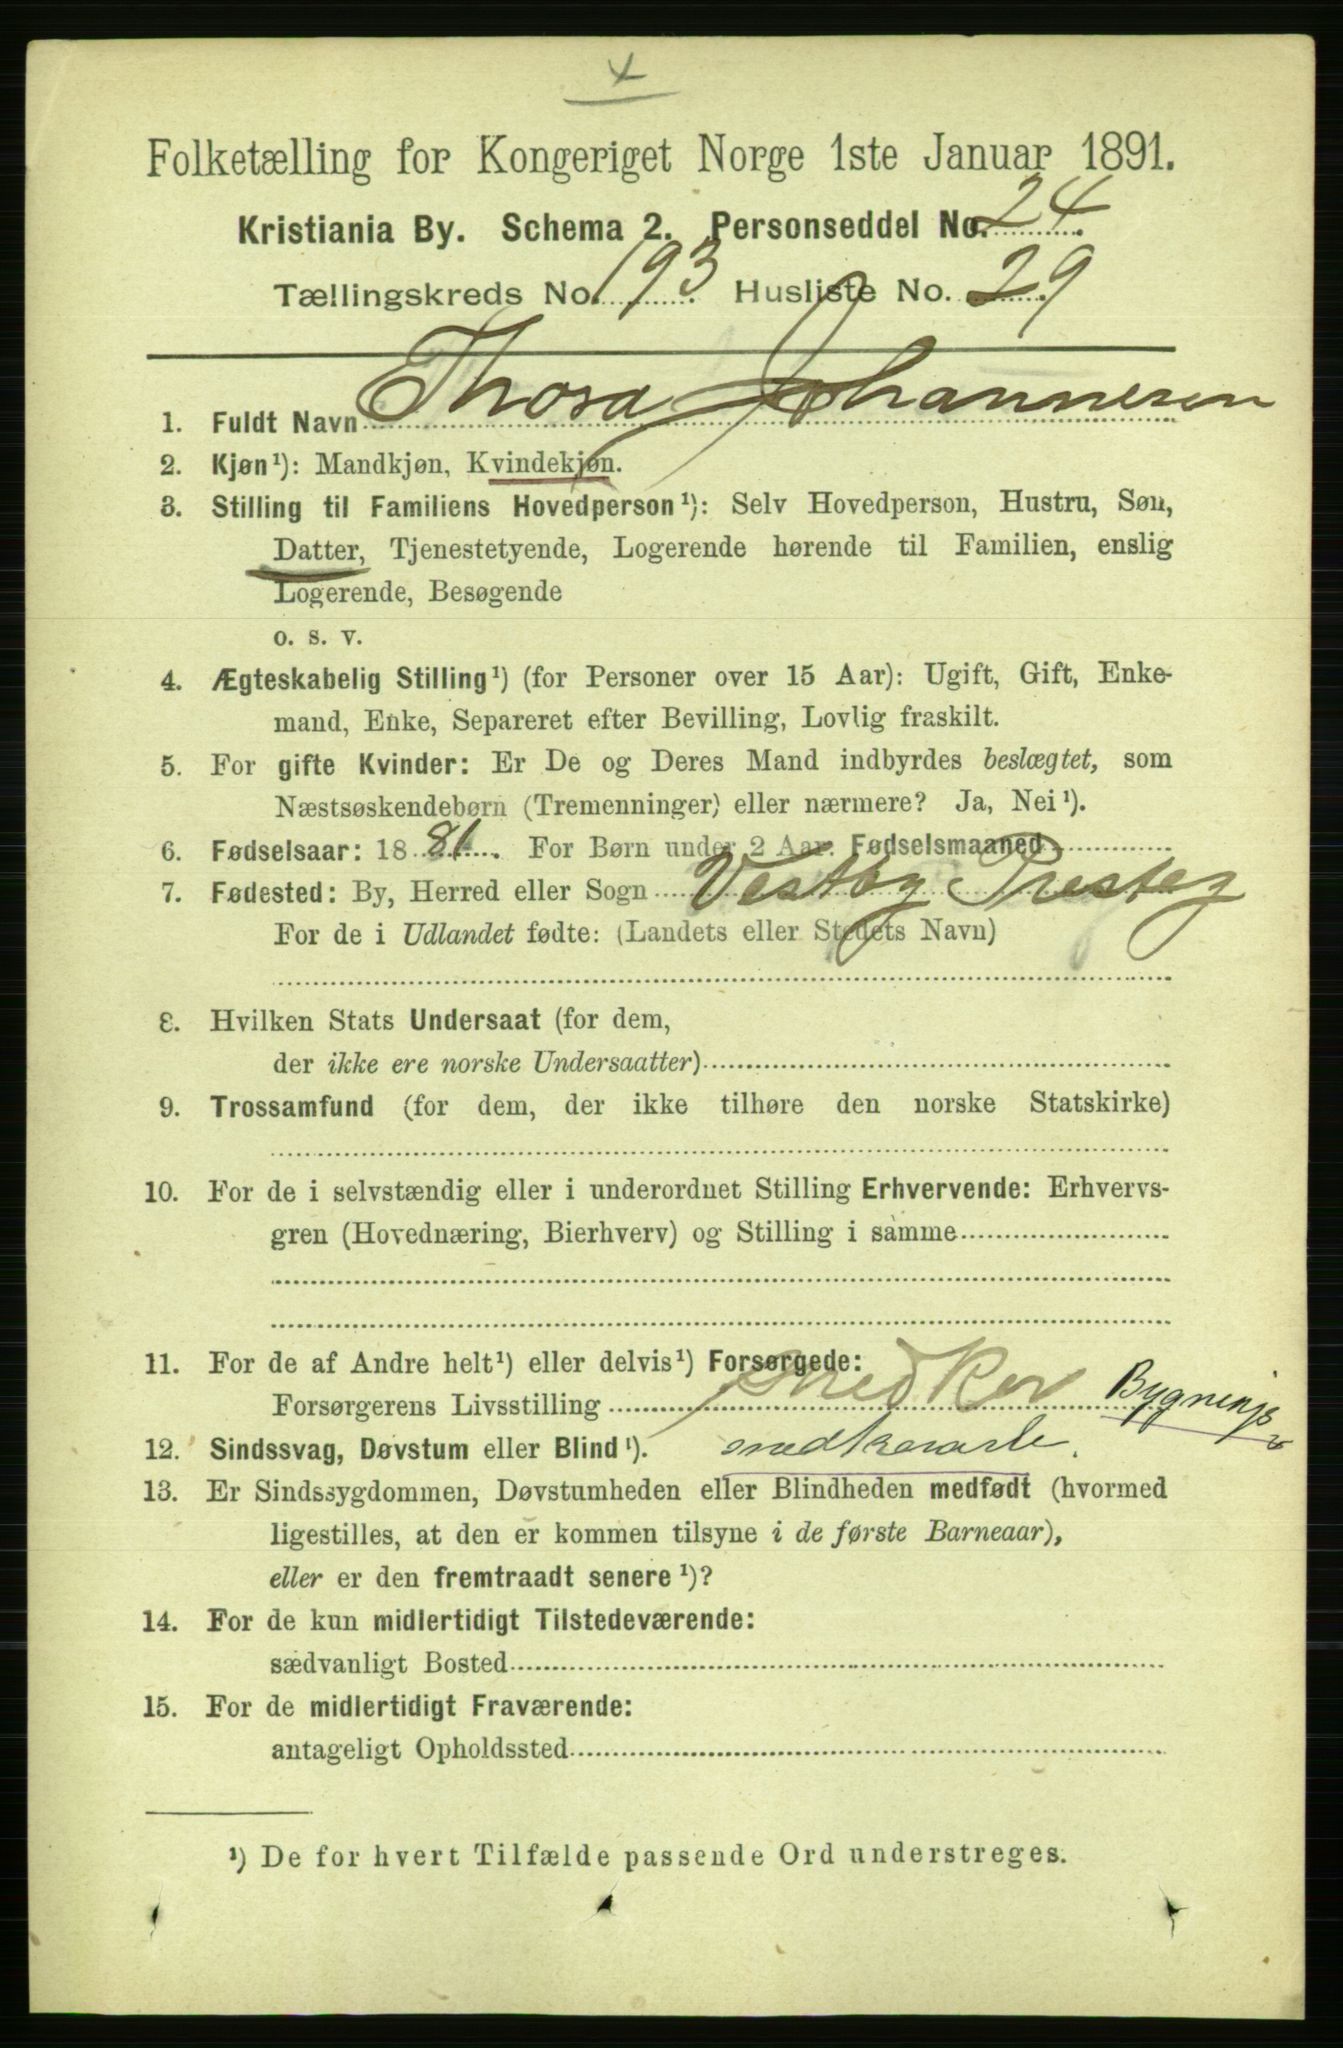 x
Folketælling for Kongeriget Norge 1ste Januar 1891.
Kristiania By. Schema 2. Personseddel No. 24.
Tællingskreds No. 193. Husliste No. 29.
1. Fuldt Navn Thora Johannesen
2. Kjøn¹): Mandkjøn, Kvindekjøn.
3. Stilling til Familiens Hovedperson¹): Selv Hovedperson, Hustru, Søn,
Datter, Tjenestetyende, Logerende hørende til Familien, enslig
Logerende, Besøgende
o. s. v.
4. Ægteskabelig Stilling¹) (for Personer over 15 Aar): Ugift, Gift, Enke-
mand, Enke, Separeret efter Bevilling, Lovlig fraskilt.
5. For gifte Kvinder: Er De og Deres Mand indbyrdes beslægtet, som
Næstsøskendebørn (Tremenninger) eller nærmere? Ja, Nei¹).
6. Fødselsaar: 1881. For Børn under 2 Aar. Fødselsmaaned
7. Fødested: By, Herred eller Sogn Vestby Presteg
For de i Udlandet fødte: (Landets eller Stedets Navn)
8. Hvilken Stats Undersaat (for dem,
der ikke ere norske Undersaatter)
9. Trossamfund (for dem, der ikke tilhøre den norske Statskirke)
10. For de i selvstændig eller i underordnet Stilling Erhvervende: Erhvervs-
gren (Hovednæring, Bierhverv) og Stilling i samme
11. For de af Andre helt¹) eller delvis¹) Forsørgede:
Forsørgerens Livsstilling snedker Bygnings
12. Sindssvag, Døvstum eller Blind¹).
13. Er Sindssygdommen, Døvstumheden eller Blindheden medfødt (hvormed
ligestilles, at den er kommen tilsyne i de første Barneaar),
eller er den fremtraadt senere¹)?
14. For de kun midlertidigt Tilstedeværende:
sædvanligt Bosted
15. For de midlertidigt Fraværende:
antageligt Opholdssted
¹) De for hvert Tilfælde passende Ord understreges.